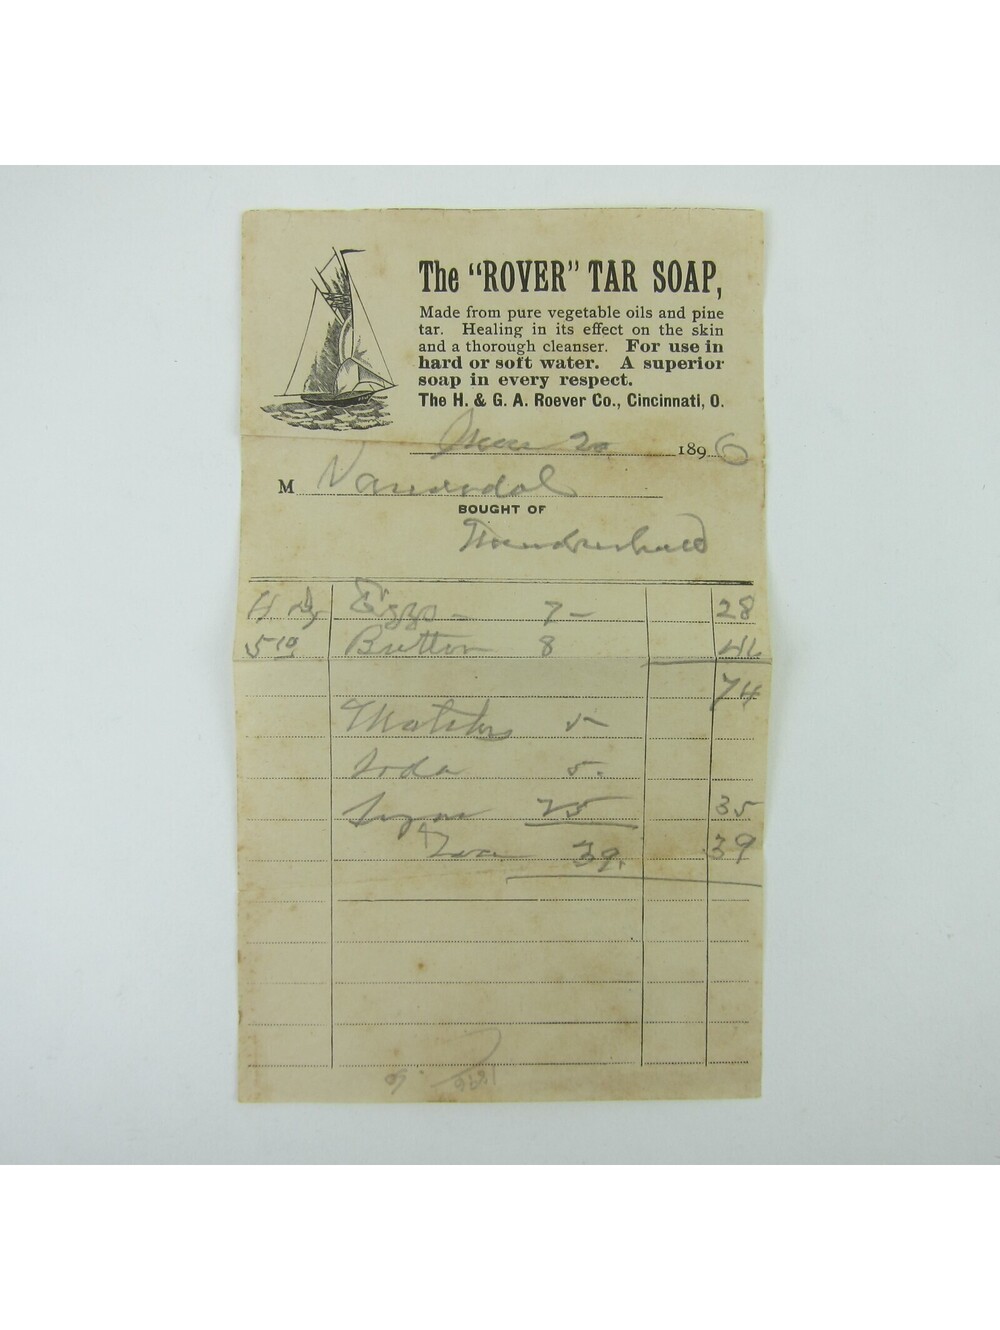 The "ROVER" TAR SOAP,
Made from pure vegetable oils and pine
tar. Healing in its effect on the skin
and a thorough cleanser. For use in
hard or soft water. A superior
soap in every respect.
The H. & G. A. Roever Co., Cincinnati, O.
20 1896
M
BOUGHT OF
Eggs - 7 - 28
Butter 8 46
74
Matches 5
Soda 5.
Sugar 25 35
39. 39